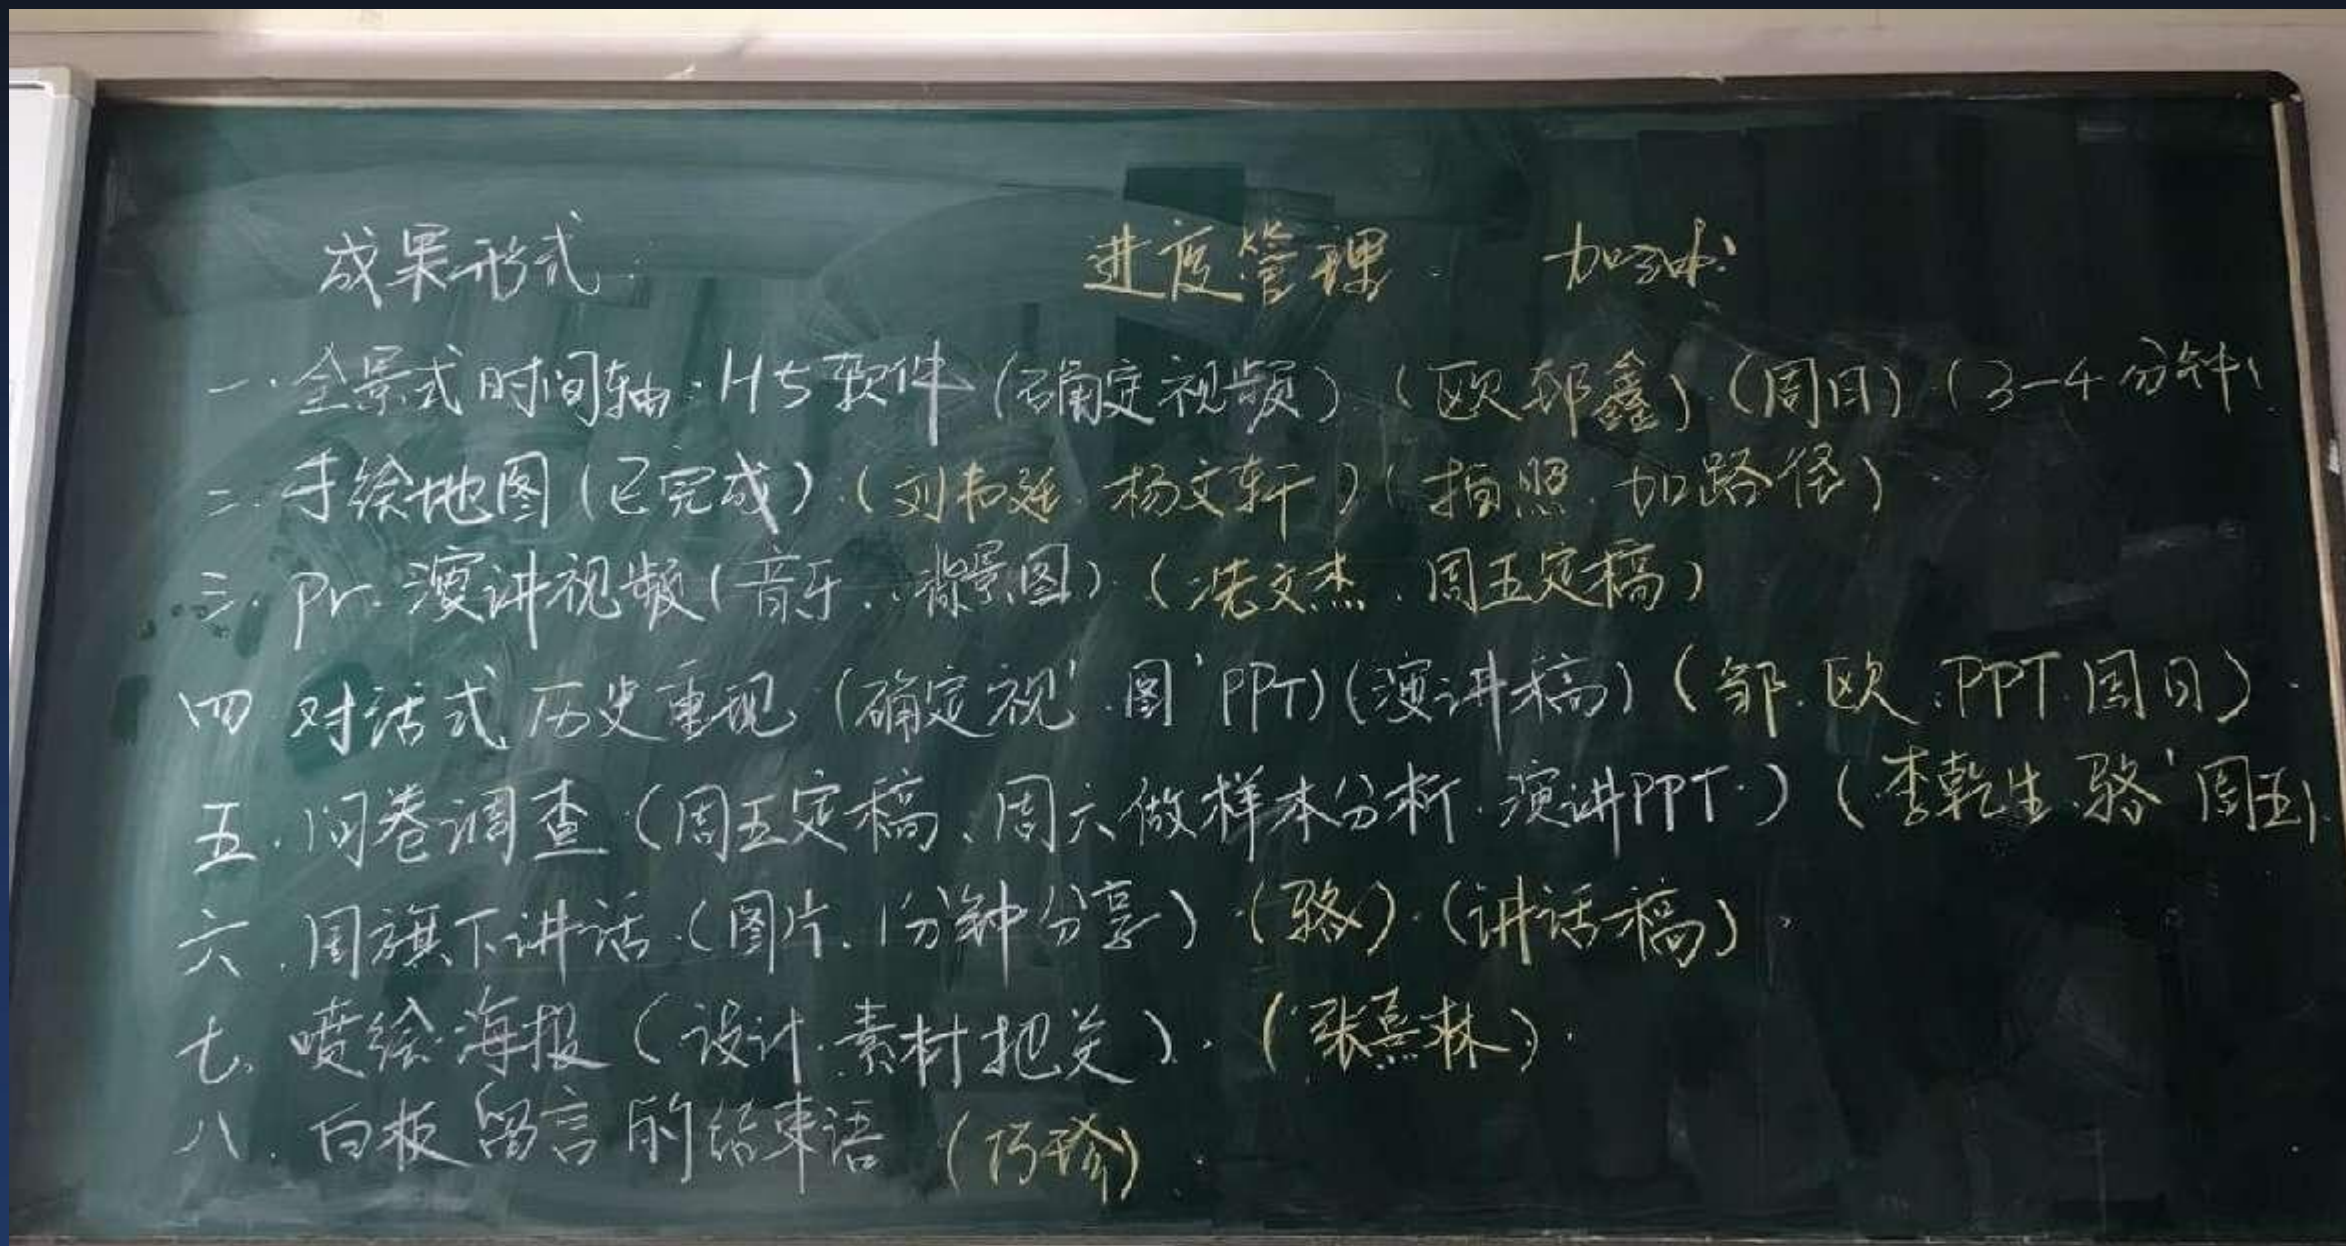 成果形式: 进度管理. 加油!
一.全景式时间轴.H5软件(确定视频)(欧郅鑫)(周日)(3-4分钟)
二.手绘地图(已完成)(刘韦廷.杨文轩)(拍照.加路径)
三.Pr.演讲视频(音乐..背景图)(冼文杰.周五定稿)
四 对话式历史重现(确定视'.图'PPT)(演讲稿)(邹.欧.PPT.周日)
五.问卷调查(周五定稿、周六做样本分析.演讲PPT.)(李乾生.骆'周五)
六.国旗下讲话.(图片.1分钟分享)(骆).(讲话稿)
七.喷绘海报(设计.素材把关).(张熹林).
八.白板留言的结束语(巧珍).